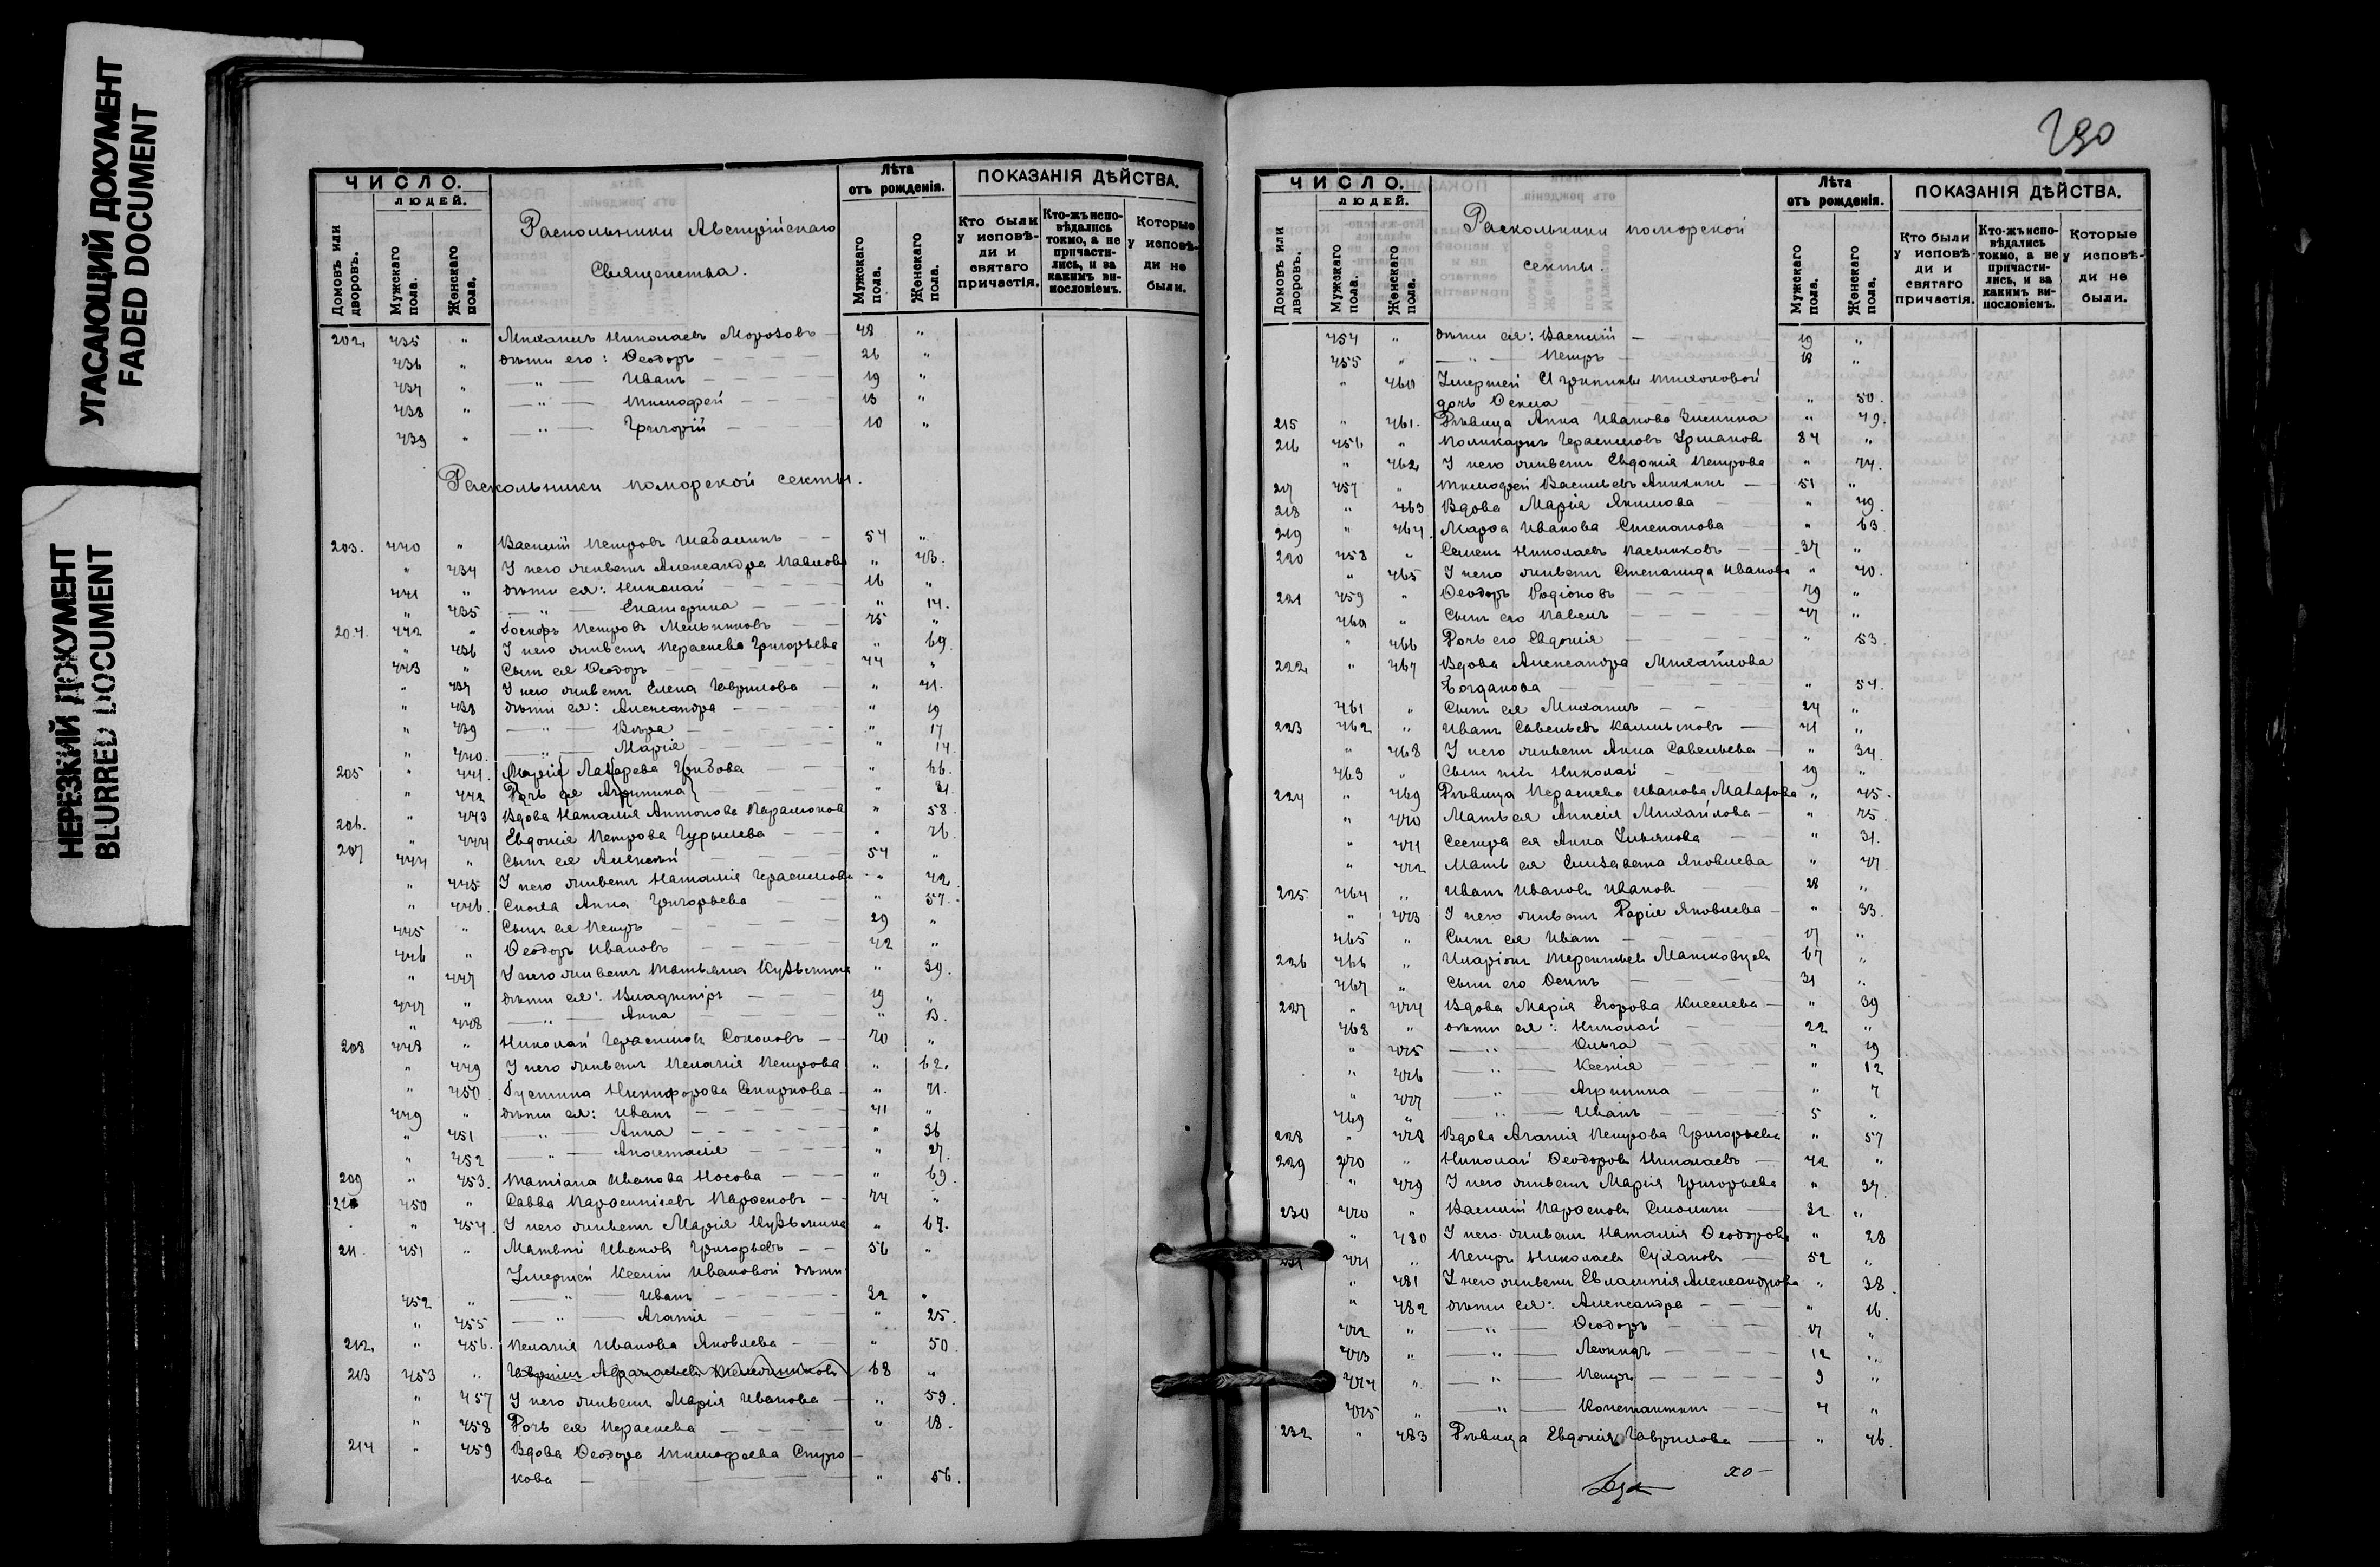 УГАСАЮЩИЙ ДОКУМЕНТ
FADED DOCUMENT
НЕРЕЗКИЙ ДОКУМЕНТ
BLURRED DOCUMENT
ЧИСЛО.
ЛЮДЕЙ.
Домовъ или дворовъ.
Мужскаго пола.
Женскаго пола.
Раскольники Австрійскаго
Священства.
Лѣта отъ рожденія.
Мужскаго пола.
Женскаго пола.
ПОКАЗАНІЯ ДѢЙСТВА.
Кто были у исповѣди и святаго причастія.
Кто-жъ исповѣдались токмо, а не причастились, и за какимъ винословіемъ.
Которые у исповѣди не были.
202. 435 " Михаилъ Николаевъ Морозовъ — 48 "
436 " дѣти его: Ѳеодоръ — 26 "
437 " — " — Иванъ — 19 "
438 " — " — Тимофей — 13 "
439 " — " — Григорій — 10 "
Раскольники поморской секты.
203. 440 " Василій Петровъ Шабалинъ — 54 "
" 434 У него живетъ Александра Павлова " 43.
441 " дѣти ея: Николай 16 "
" 435 — " — Екатерина — " 14.
204. 442 " Іосифъ Петровъ Мельниковъ — 75 "
" 436 У него живетъ Параскева Григорьева " 69.
443 " Сынъ ея Ѳеодоръ — 44 "
" 437 У него живетъ Елена Гаврилова — " 41.
" 438 дѣти ея: Александра — " 19
" 439 — " — Вѣра — " 17
" 440. — " — Марія — " 14.
205 " 441. Марія Лазарева — " 66.
" 442 Дочь ея Агрипина — " 21.
206. " 443 Вдова Наталія Антонова Парамонова " 58.
207 " 444 Евдокія Петрова — " 76.
444 " Сынъ ея Алексѣй — 54 "
" 445 У него живетъ Наталія Герасимова " 42.
" 446. Сноха Анна Григорьева — " 57.
445 " Сынъ ея Петръ — 29 "
446 " Ѳеодоръ Ивановъ — 42 "
" 447 У него живетъ Татьяна Кузьмина " 39.
447 " дѣти ея: Владиміръ — 19 "
" 448 — " — Анна — " 13.
208 448 " Николай Герасимовъ Соколовъ — 70 "
" 449 У него живетъ Пелагія Петрова " 62.
" 450. Іустина Никифорова Смирнова — " 71.
449 " дѣти ея: Иванъ — 41 "
" 451 — " — Анна — " 36
" 452 — " — Анастасія — " 27.
209 " 453. Татіана Иванова Носова — " 69.
210 450 " Савва Парѳентіевъ Парѳеновъ — 74 "
" 454. У него живетъ Марія Кузьмина " 67.
211. 451 " Матвѣй Ивановъ Григорьевъ — 56 "
Умершей Ксеніи Ивановой дѣти
452 " — " — Иванъ — 32 "
" 455 — " — Агапія — " 25.
212. " 456. Пелагія Иванова Яковлева — " 50.
213 453 " Гавріилъ Аѳанасьевъ 68 "
" 457 У него живетъ Марія Иванова — " 59.
" 458 Дочь ея Параскева — " 18.
214 " 459 Вдова Ѳеодора Тимофеева Стро-
кова — " 56.
290
ЧИСЛО.
ЛЮДЕЙ.
Домовъ или дворовъ.
Мужскаго пола.
Женскаго пола.
Раскольники поморской
секты.
Лѣта отъ рожденія.
Мужскаго пола.
Женскаго пола.
ПОКАЗАНІЯ ДѢЙСТВА.
Кто были у исповѣди и святаго причастія.
Кто-жъ исповѣдались токмо, а не причастились, и за какимъ винословіемъ.
Которые у исповѣди не были.
454 " дѣти ея: Василій — 19 "
455 " — " — Петръ — 18 "
" 460 Умершей Агрипины Тихоновой
дочь Ѳекла — " 50.
215 " 461. Дѣвица Анна Иванова Зимина " 49.
216 456 " Поликарпъ Герасимовъ 84 "
" 462 У него живетъ Евдокія Петрова " 74.
217 457 " Тимофей Васильевъ Аникинъ — 51 "
218 " 463 Вдова Марія Якимова — " 79.
219 " 464. Марѳа Иванова Степанова — " 63.
220 458 " Семенъ Николаевъ — 37 "
" 465 У него живетъ Степанида Иванова " 40.
221 459 " Ѳеодоръ Родіоновъ — 79 "
460 " Сынъ его Павелъ — 47 "
" 466 Дочь его Евдокія — " 53.
222 " 467 Вдова Александра Михайлова
Богданова — " 54.
461 " Сынъ ея Михаилъ — 24 "
223 462 " Иванъ Савельевъ Калмыковъ — 41 "
" 468 У него живетъ Анна Савельева — " 34.
463 " Сынъ ихъ Николай — 19 "
224 " 469 Дѣвица Параскева Иванова Макарова " 45.
" 470 Мать ея Анисія Михайлова — " 75.
" 471 Сестра ея Анна — " 31.
" 472 Мать ея Елизавета Яковлева " 47
225 464 " Иванъ Ивановъ Ивановъ — 28 "
" 473 У него живетъ Дарія Яковлева — " 33.
465 " Сынъ ея Иванъ — 17 "
226 466 " Иларіонъ Терентьевъ 67 "
467 " Сынъ его Осипъ — 31 "
227 " 474 Вдова Марія Егорова Киселева — " 39
468 " дѣти ея: Николай — 22 "
" 475 — " — Ольга — " 19
" 476 — " — Ксенія — " 12
" 477 — " — Агрипина — " 7
469 " — " — Иванъ — 5 "
228 " 478 Вдова Агапія Петрова Григорьева " 57
229 470 " Николай Ѳеодоровъ Николаевъ — 42 "
" 479 У него живетъ Марія Григорьева " 37.
230 470 " Василій Парѳеновъ — 32 "
" 480 У него живетъ Наталія Ѳеодорова " 28
231 471 " Петръ Николаевъ Сухановъ — 52 "
" 481 У него живетъ Евлампія Александрова " 38.
" 482 дѣти ея: Александра — " 16.
472 " — " — Ѳеодоръ — 17 "
473 " — " — Леонидъ — 12 "
474 " — " — Петръ — 9 "
475 " — " — Константинъ — 4 "
232 " 483 Дѣвица Евдокія Гаврилова — " 46.